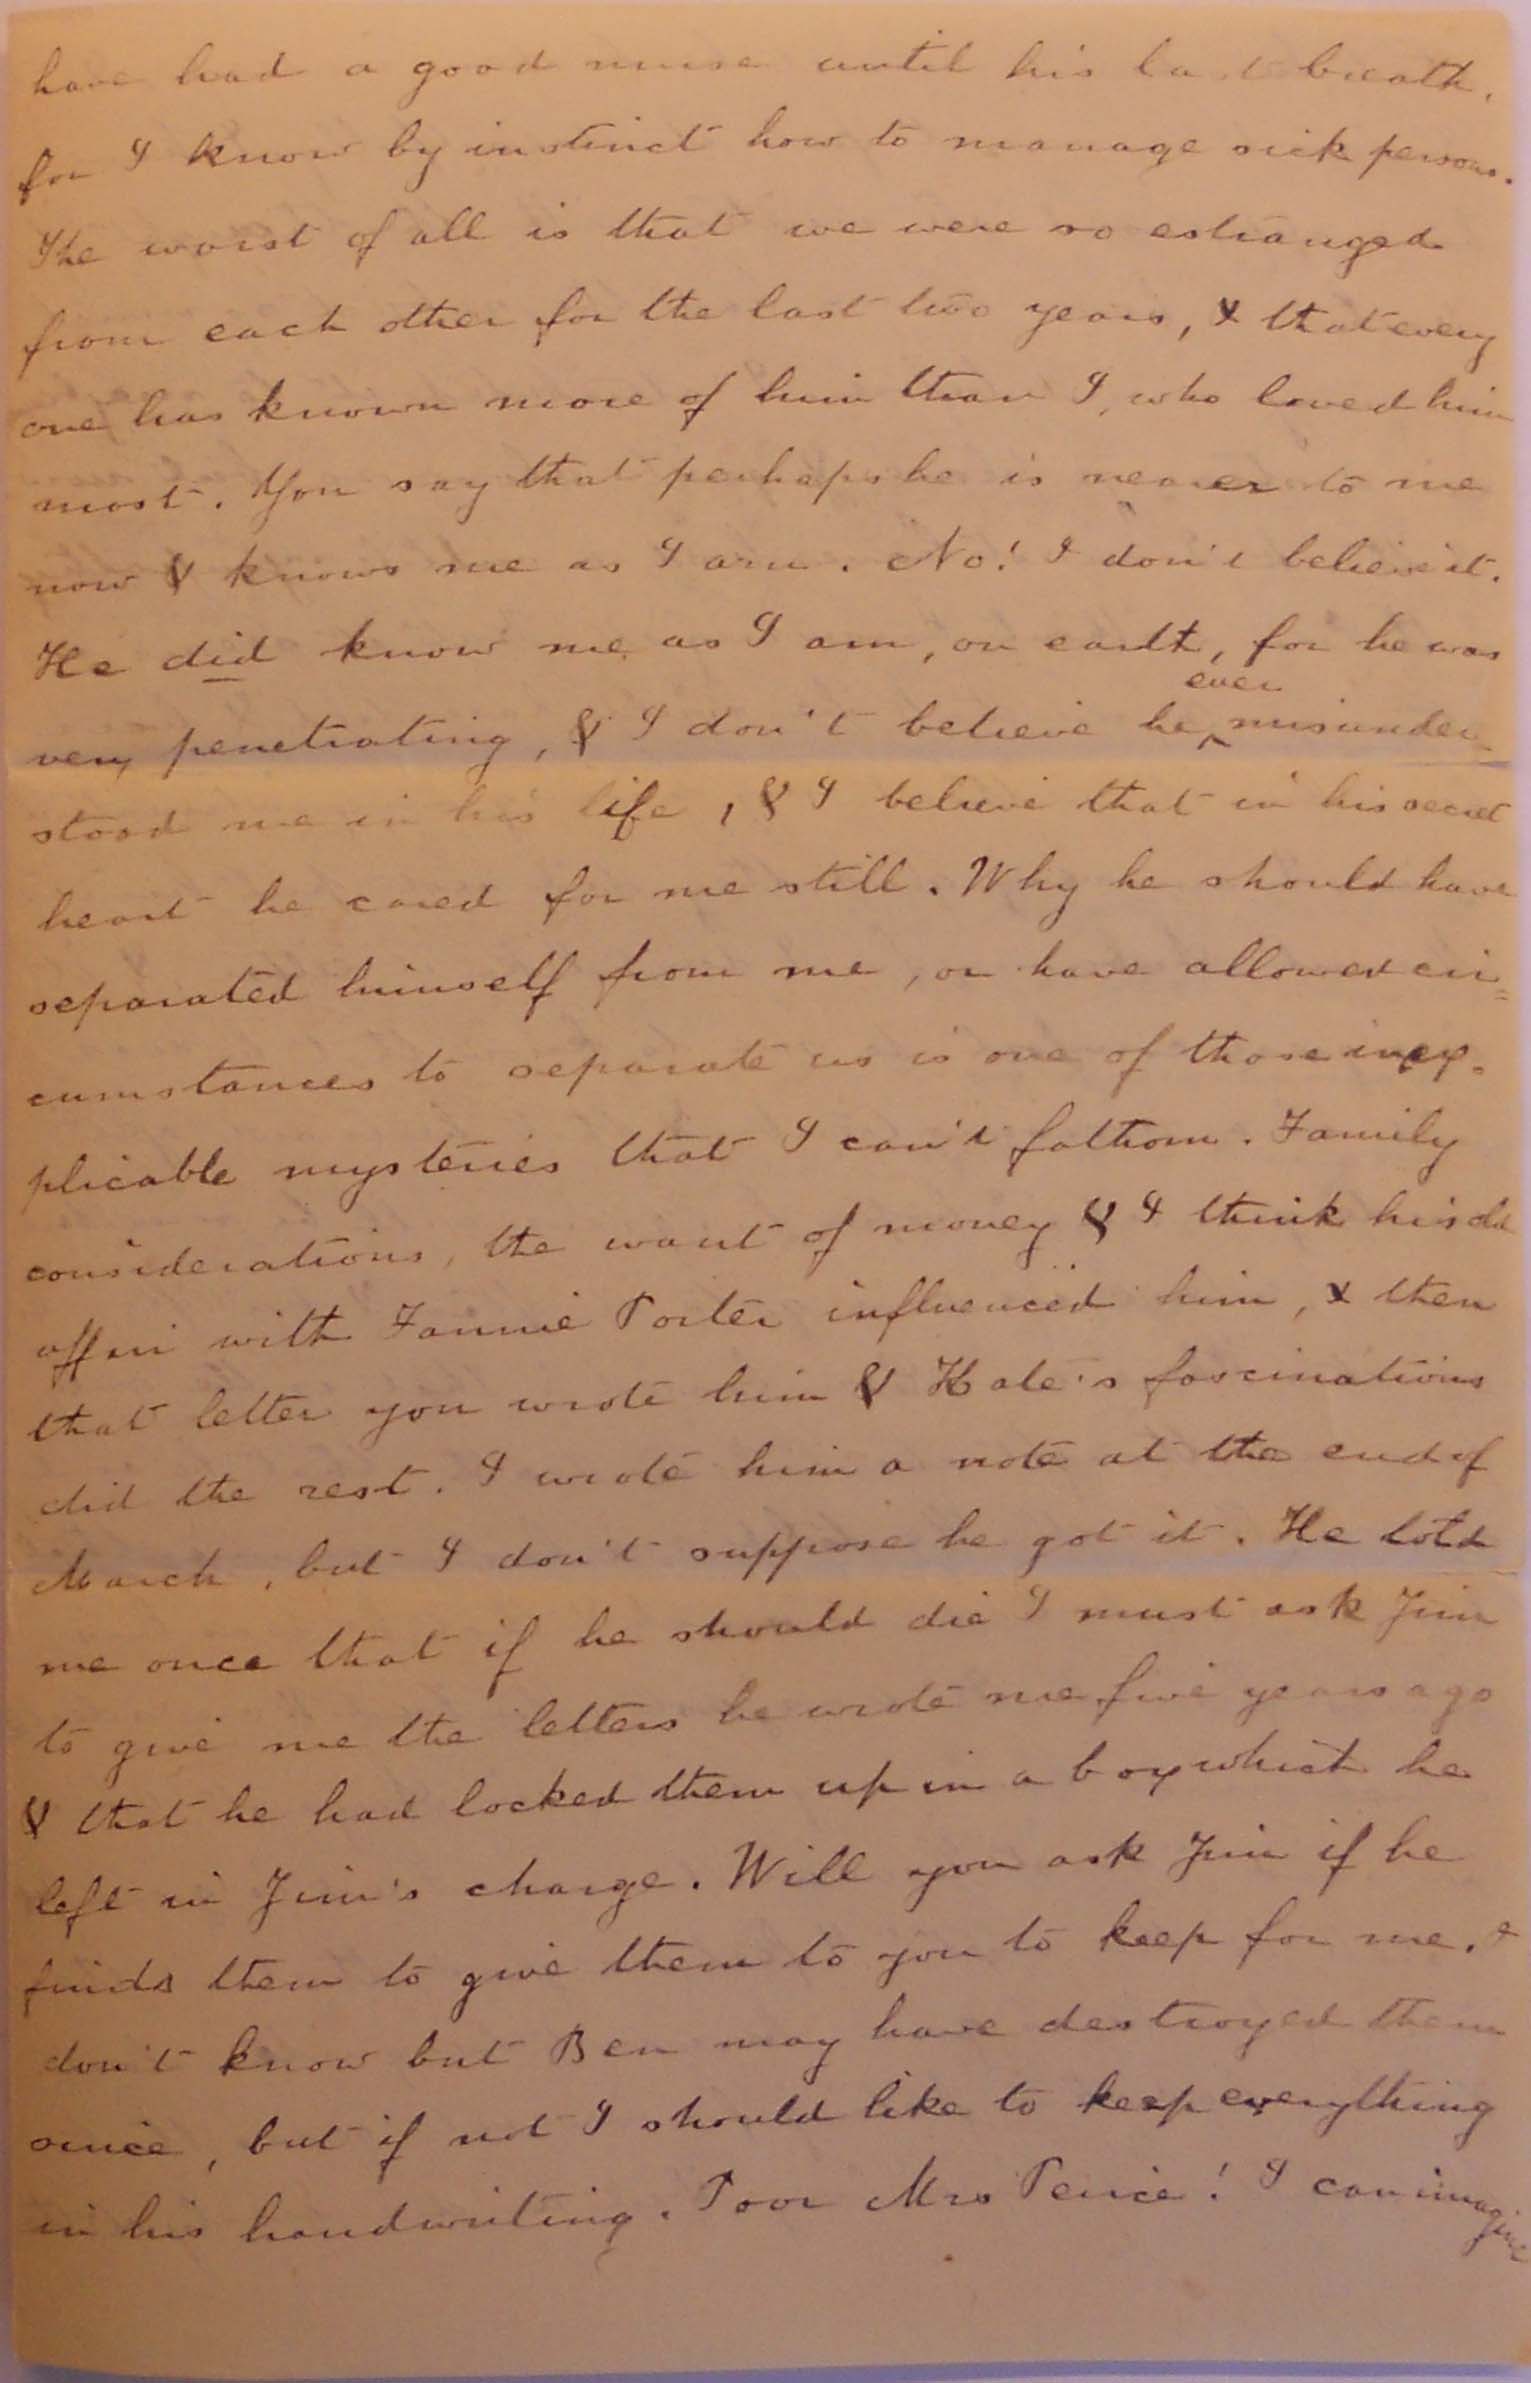 have had a good nurse until his last breath,
for I know by instinct how to manage sick persons.
The worst of all is that we were so estranged
from each other for the last two years, & that every
one has known more of him than I, who loved him
most. You say that perhaps he is nearer to me
now & knows me as I am. No! I don't believe it.
He did know me as I am, on earth, for he was
ever
very penetrating, & I don't believe he ^ misunder-
stood me in his life, & I believe that in his secret
heart he cared for me still. Why he should have
separated himself from me, or have allowed cir=
cumstances to separate us is one of those inex-
plicable mysteries that I can't fathom. Family
considerations, the want of money & I think his old
affair with Fannie Porter influenced him, & then
that letter you wrote him & Kate's fascinations
did the rest. I wrote him a note at the end of
March, but I don't suppose he got it. He told
me once that if he should die I must ask Jim
to give me the letters he wrote me five years ago
& that he had locked them up in a box which he
left in Jim's charge. Will you ask Jim if he
finds them to give them to you to keep for me. I
don't know but Ben may have destroyed them
since, but if not I should like to keep everything
in his handwriting. Poor Mrs Penice! I can imagine